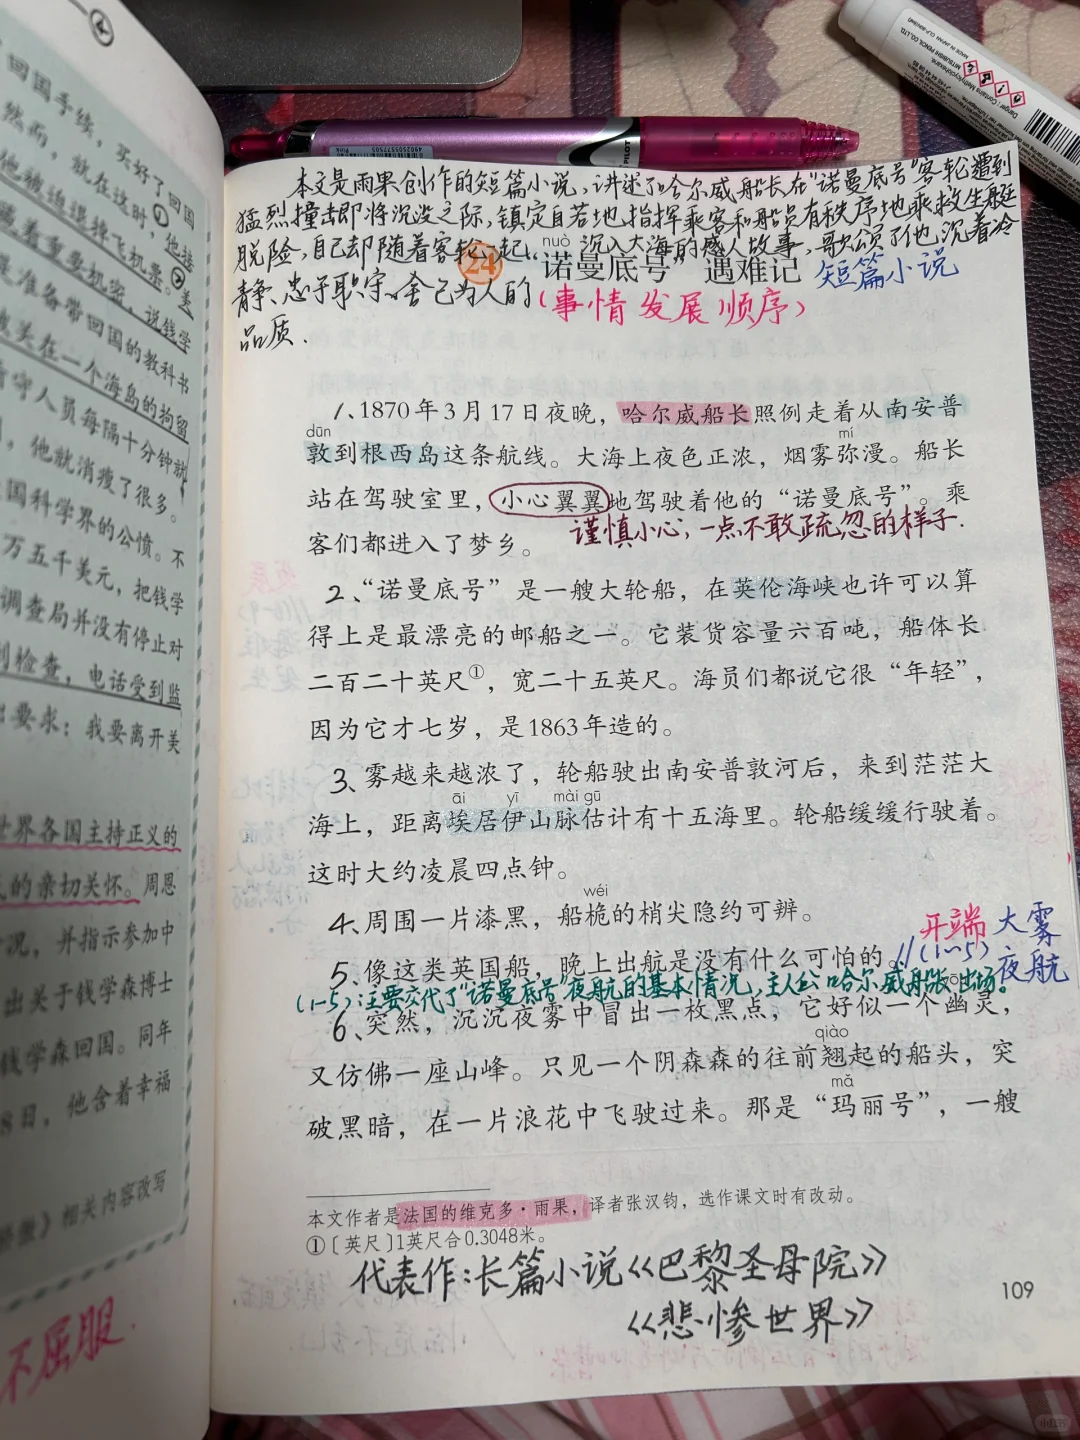 回国手续，买好了回国
然而，就在这时，他接
他被迫退掉飞机票。
藏着重要机密，说钱学
是准备带回国的教科书
被关在一个海岛的拘留
看守人员每隔十分钟就
，他就消瘦了很多。
国科学界的公愤。不
万五千美元，把钱学
调查局并没有停止对
到检查，电话受到监
出要求：我要离开美
世界各国主持正义的
的亲切关怀。周恩
况，并指示参加中
出关于钱学森博士
钱学森回国。同年
8日，他含着幸福
相关内容改写
不屈服.
本文是雨果创作的短篇小说，讲述了哈尔威船长在“诺曼底号”客轮遭到
猛烈撞击即将沉没之际，镇定自若地指挥乘客和船员有秩序地乘救生艇
脱险，自己却随着客轮一起沉入大海的感人故事，歌颂了他沉着冷
静、忠于职守、舍己为人的
品质.
nuò
24 “诺曼底号”遇难记 短篇小说
(事情发展顺序)
1、1870年3月17日夜晚，哈尔威船长照例走着从南安普
dūn mí
敦到根西岛这条航线。大海上夜色正浓，烟雾弥漫。船长
站在驾驶室里，小心翼翼地驾驶着他的“诺曼底号”。乘
谨慎小心，一点不敢疏忽的样子.
客们都进入了梦乡。
2、“诺曼底号”是一艘大轮船，在英伦海峡也许可以算
得上是最漂亮的邮船之一。它装货容量六百吨，船体长
二百二十英尺①，宽二十五英尺。海员们都说它很“年轻”，
因为它才七岁，是1863年造的。
3、雾越来越浓了，轮船驶出南安普敦河后，来到茫茫大
āi yī mài gū
海上，距离埃居伊山脉估计有十五海里。轮船缓缓行驶着。
这时大约凌晨四点钟。
wéi
4、周围一片漆黑，船桅的梢尖隐约可辨。
开端 大雾
5、像这类英国船，晚上出航是没有什么可怕的。//(1~5) 夜航
(1-5)：主要交代了“诺曼底号”夜航的基本情况，主人公哈尔威船长出场。
6、突然，沉沉夜雾中冒出一枚黑点，它好似一个幽灵，
qiào
又仿佛一座山峰。只见一个阴森森的往前翘起的船头，突
mǎ
破黑暗，在一片浪花中飞驶过来。那是“玛丽号”，一艘
本文作者是法国的维克多·雨果，译者张汉钧，选作课文时有改动。
①〔英尺〕1英尺合0.3048米。
代表作：长篇小说《巴黎圣母院》
《悲惨世界》
109
PILOT
MITSUBISHI PENCIL CO.,LTD.
MADE IN JAPAN